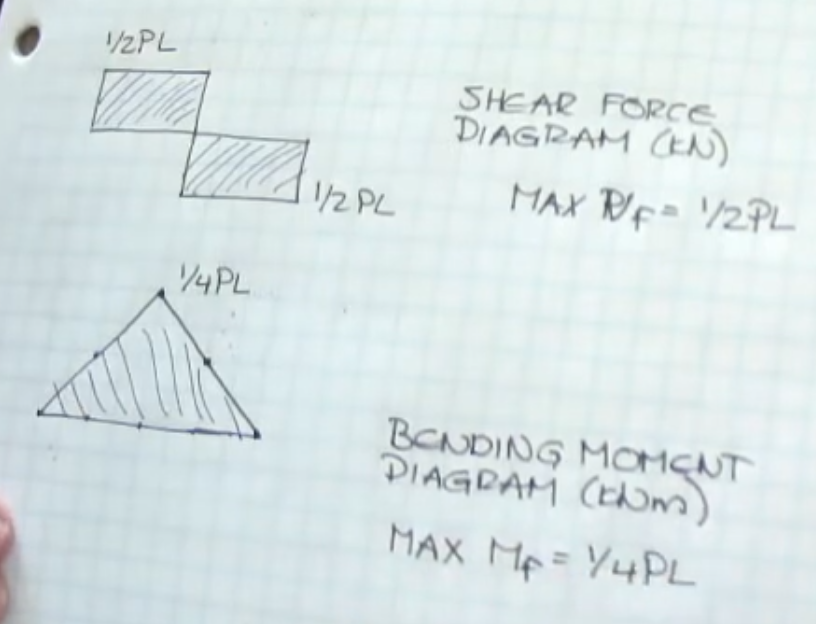 1/2PL
SHEAR FORCE
DIAGRAM (kN)
1/2PL
MAX Vf = 1/2PL
1/4PL
BENDING MOMENT
DIAGRAM (kNm)
MAX Mf = 1/4PL